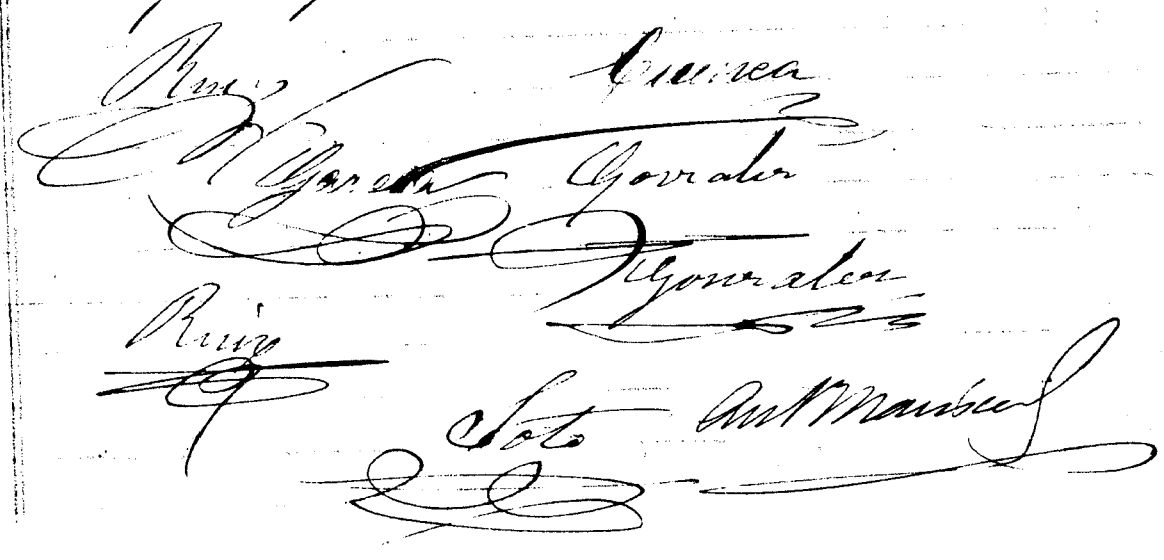 Ruiz Cuenca
Garcia Gonzalez
Gonzalez
Ruiz
Soto Ant Mariscal